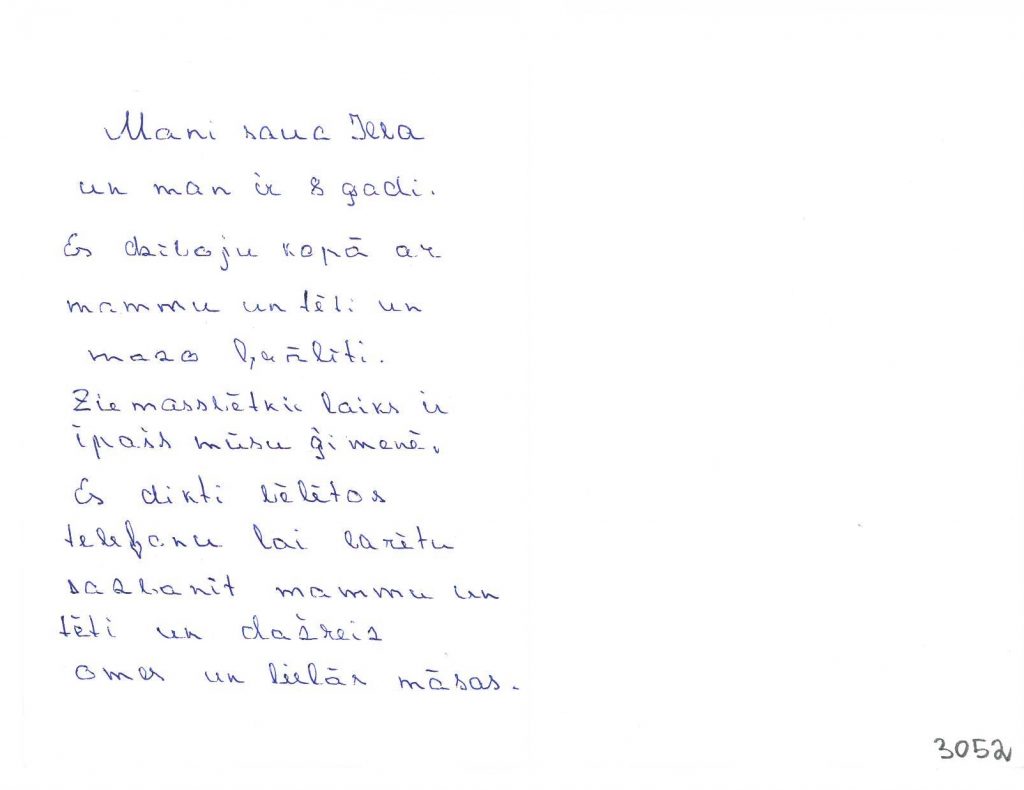 Mani sauc Ieva
un man ir 8 gadi.
Es dzīvoju kopā ar
mammu un tēti un
mazo brālīti.
Ziemassvētki laiks ir
īpašs mūsu ģimenē.
Es dikti vēlētos
telefonu lai varētu
sazvanīt mammu un
tēti un dažreiz
omes un lielās māsas.
3052